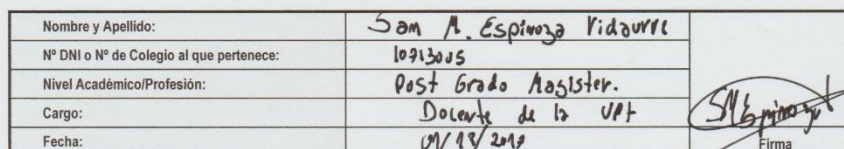 Nombre y Apellido: Sam M. Espinoza Vidaurre
Nº DNI o Nº de Colegio al que pertenece:
Nivel Académico/Profesión: Post Grado Magister.
Cargo: Docente de la UPT
Fecha:
Firma